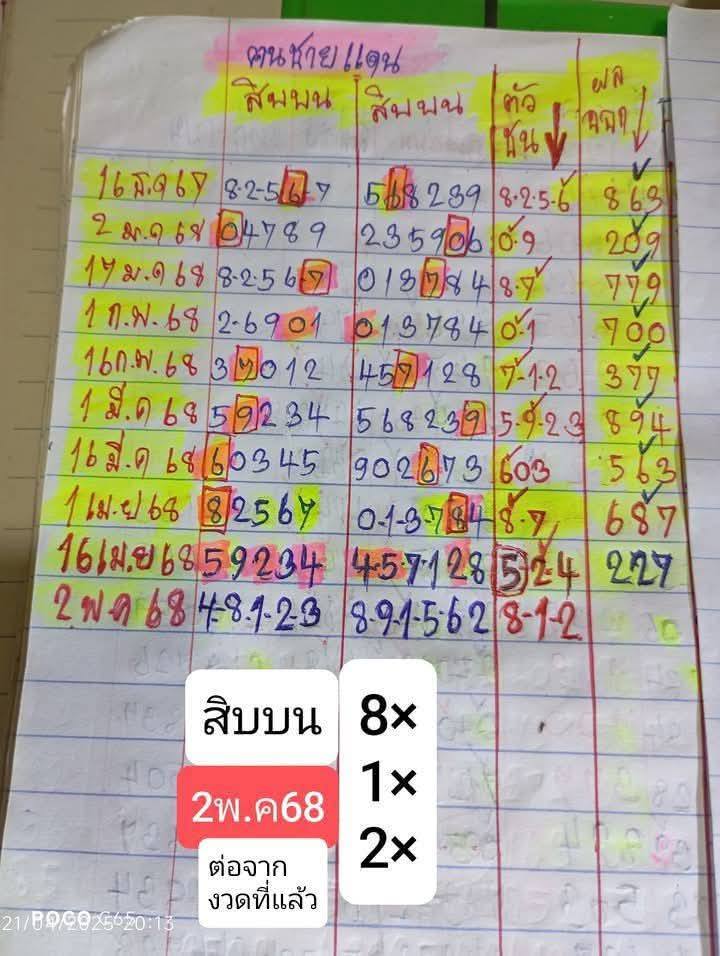 คนชายแดน
สิบบน สิบบน ตัวชน ผลออก
16 ธ.ค 67 8-2-567 568239 8.2.5.6 863
2 ม.ค 68 04789 235906 0.9 209
17 ม.ค 68 8-256-7 013784 8.7 779
1 ก.พ. 68 2-6901 013784 0.1 700
16 ก.พ. 68 37012 457128 7-1-2 377
1 มี.ค 68 59234 568239 5-9-23 894
16 มี.ค 68 60345 902673 603 563
1 เม.ย 68 82567 0-1-3-784 8-7 687
16 เม.ย 68 59234 4-57128 5 2-4 227
2 พ.ค 68 4-8-1-2-3 8-9-1-5-62 8-1-2
สิบบน 8×
2พ.ค68 1×
ต่อจาก 2×
งวดที่แล้ว
POCO C65
21/04/2025 20:13